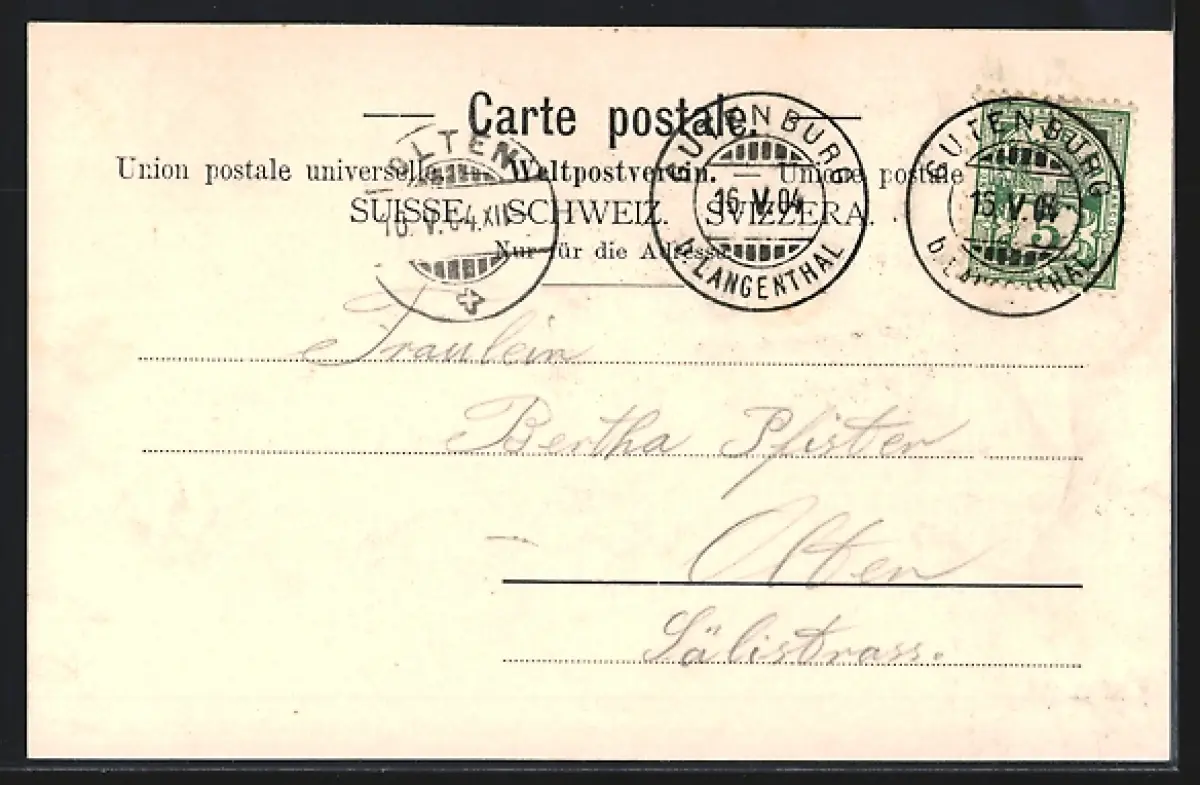 Carte postale.
Union postale universelle. — Weltpostverein. — Unione postale
SUISSE. SCHWEIZ. SVIZZERA.
Nur für die Adresse
OLTEN
16.V.04.XII
GUTENBURG
16.V.04
b. LANGENTHAL
GUTENBURG
b. LANGENTHAL
5
Fräulein
Bertha Pfister
Olten
Sälistrass.